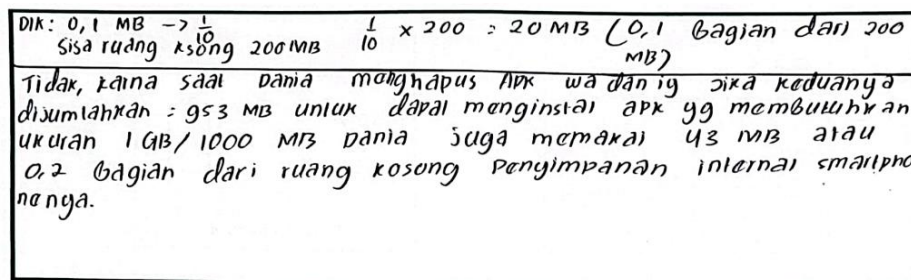 DIK: 0,1 MB -> 1/10 1/10 x 200 : 20 MB (0,1 Bagian dari 200 MB)
Sisa ruang ksong 200 MB
Tidak, karna saat Dania menghapus APK wa dan ig jika keduanya
dijumlahkan = 953 MB untuk dapat menginstal apk yg membutuhkan
ukuran 1 GB/ 1000 MB Dania juga memakai 43 MB atau
0,2 Bagian dari ruang kosong penyimpanan internal smartpho
nenya.